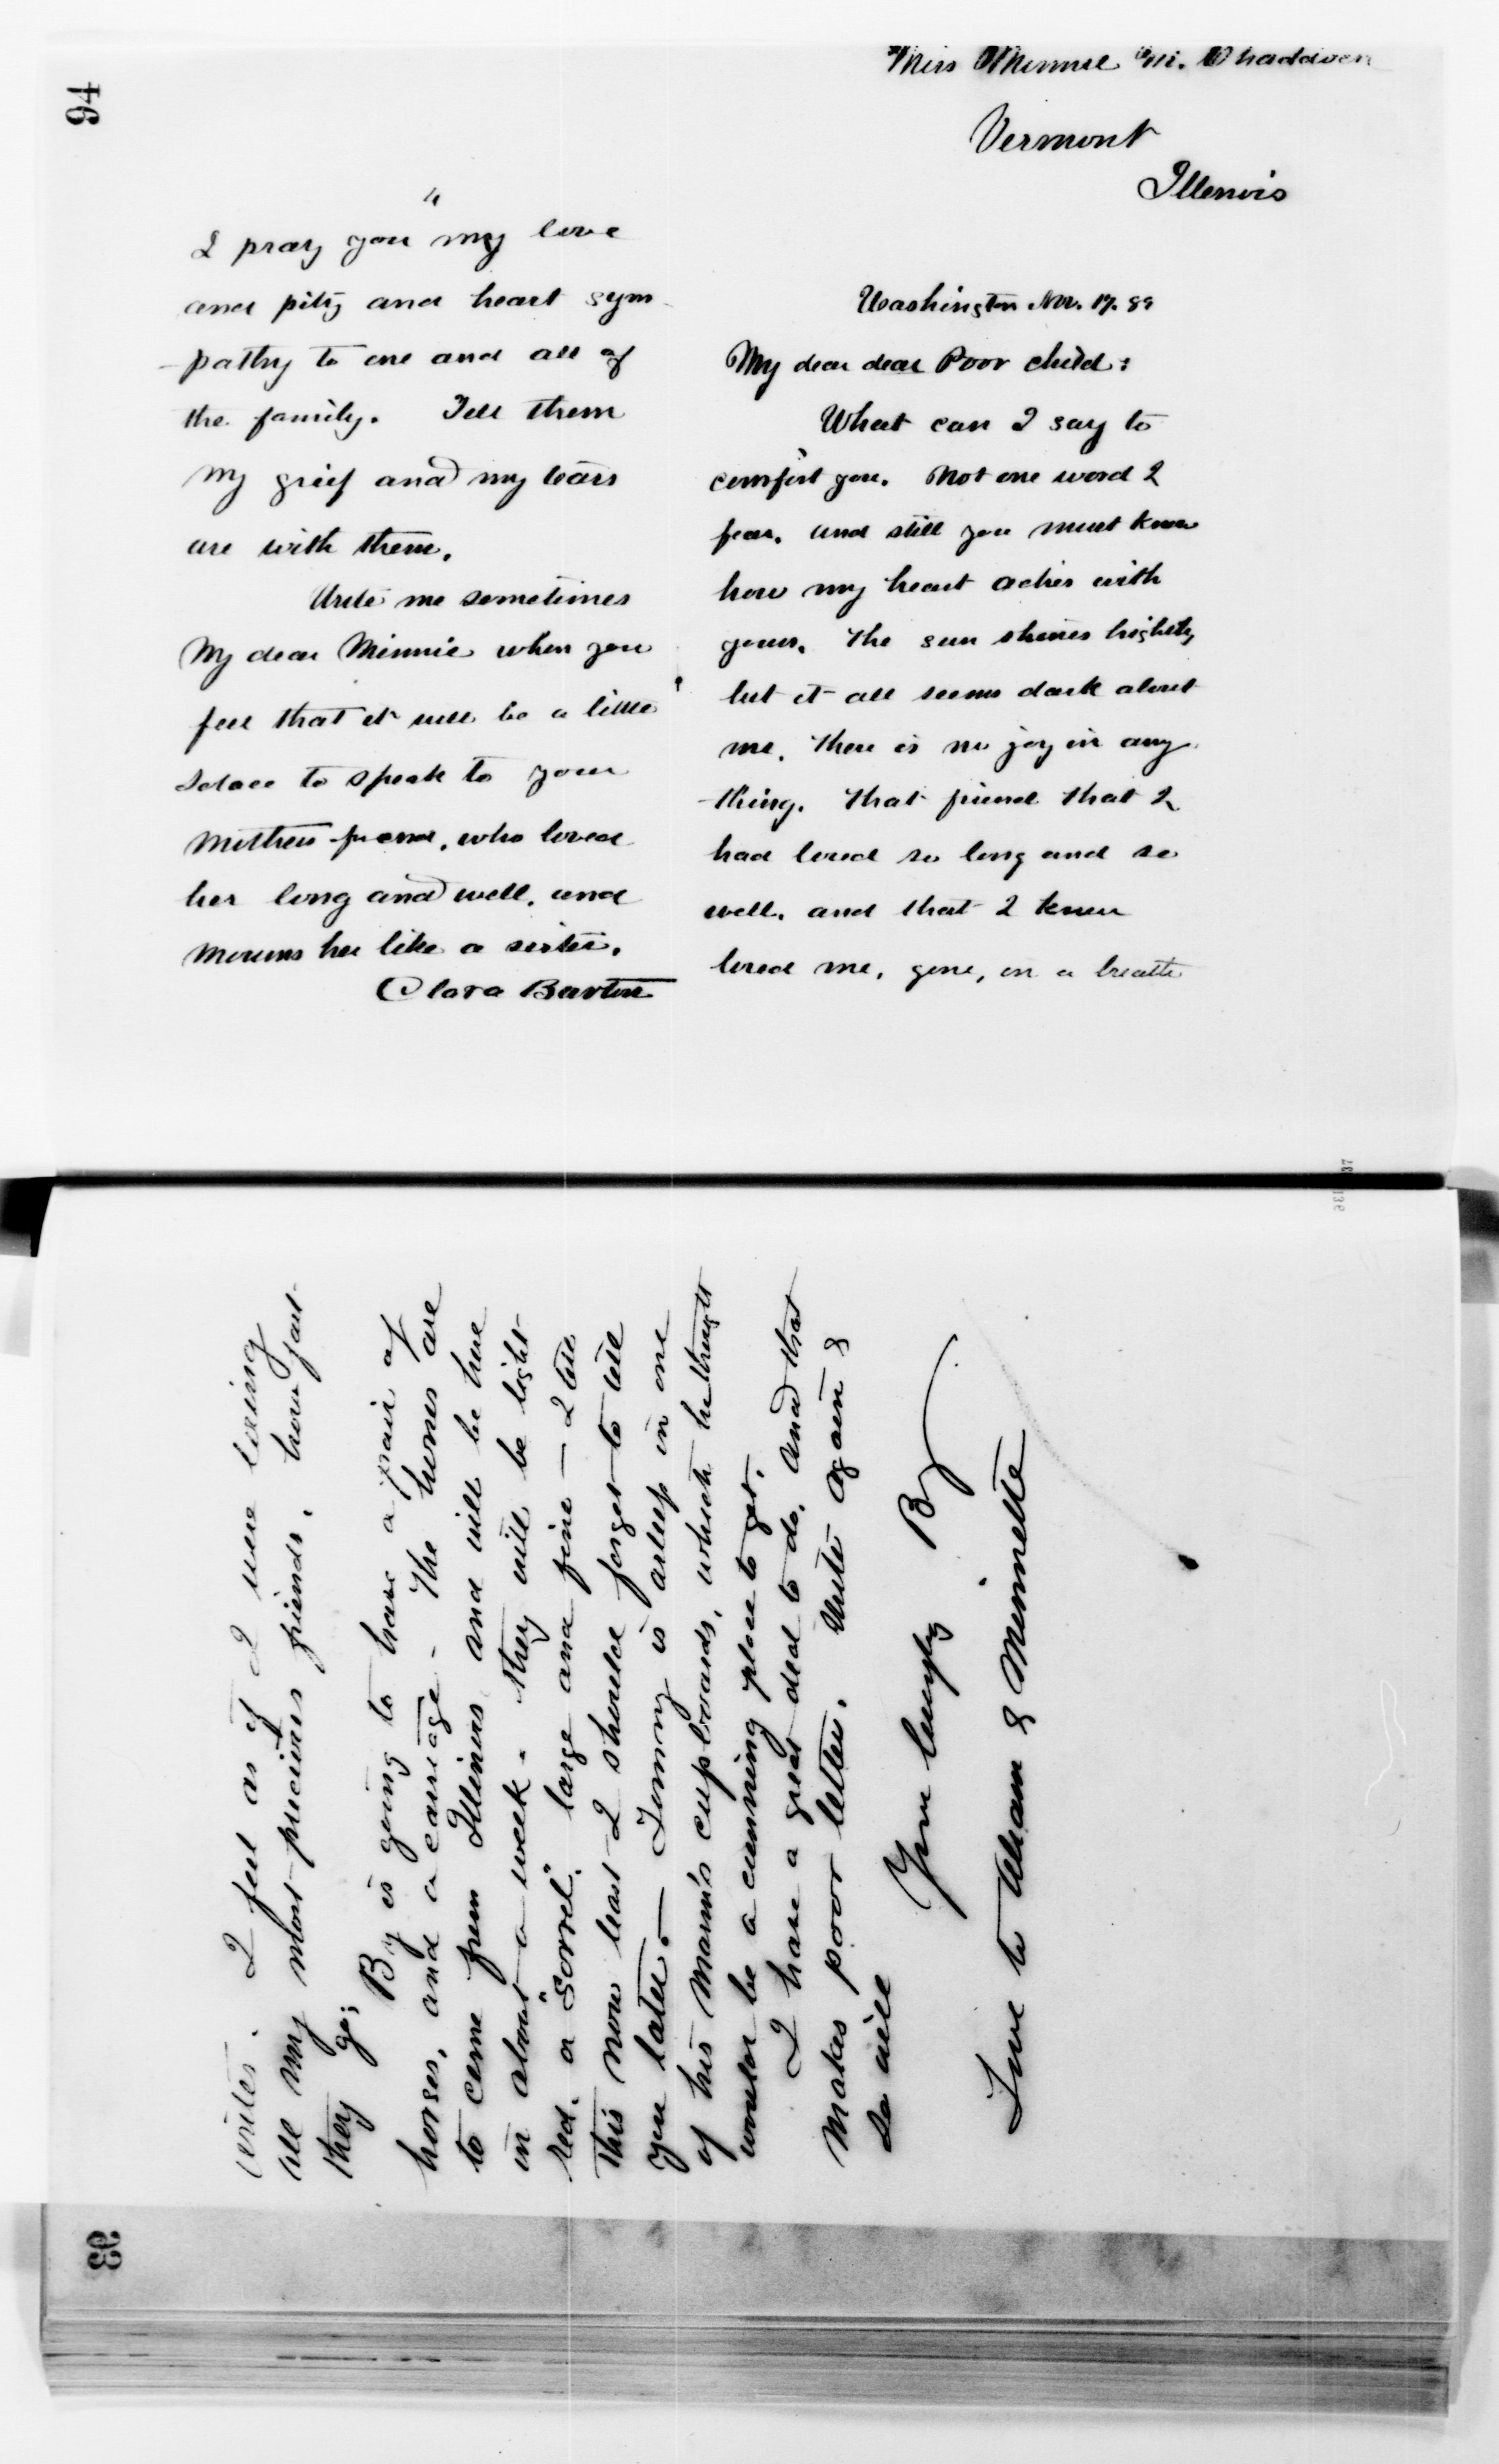 94
Miss Minnie M. Thaddaven
Vermont
Illenois
Washington Nov. 17. 89
My dear dear Poor child:
What can I say to
comfort you. Not one word I
fear. and still you must know
how my heart aches with
yours. The sun shines brightly
but it all seems dark about
me. There is no joy in any
thing. That friend that I
had loved so long and so
well. and that I knew
loved me, gone, in a breath
4
I pray you my love
and pity and heart sym
-pathy to one and all of
the family. Tell them
My grief and my tears
are with them.
Write me sometimes
My dear Minnie when you
feel that it will be a little
solace to speak to your
Mothers friend, who loved
her long and well, and
Mourns her like a sister.
Clara Barton
93
writes. I feel as if I were losing
all my most precious friends. how fast
they go;
By is going to have a pair of
horses, and a carriage - The horses are
to come from Illinois and will be here
in about a week. They will be light
red. a "Sorrel". large and fine - I tell
This now least I should forget to tell
you later. — Tommy is asleep in one
of his Mam's cupboards, which he thought
would be a cunning place to get.
I have a great deal to do. and that
Makes poor letter. Write again &
so will
Your loving By
Love to & Minnette